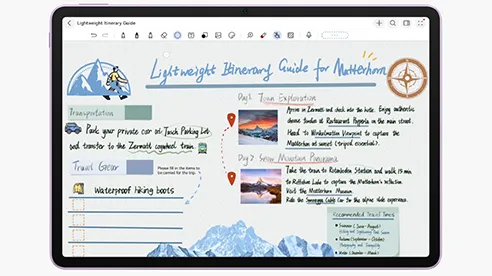 Lightweight Itinerary Guide
Lightweight Itinerary Guide for Matterhorn
Transportation
Park your private car at Täsch Parking Lot
and transfer to the Zermatt cogwheel train
Travel Gear
Please fill in the items to
be carried for the trip.
Waterproof hiking boots
Day1 Town Exploration
Arrive in Zermatt and check into the hotel. Enjoy authentic
cheese fondue at Restaurant in the main street.
Head to Viewpoint to capture the
Matterhorn at sunset (tripod essential).
Day2 Snow Mountain Panorama
Take the train to Rotenboden Station and walk 15 min
to Riffelsee Lake to capture the Matterhorn's reflection.
Visit the Matterhorn Museum.
Ride the Cable Car for the alpine slide experience.
Recommended Travel Times
Summer (June - August)
Hiking and Sightseeing Peak Season
Autumn (September - October)
Photography and Tranquility
Winter (December - March)